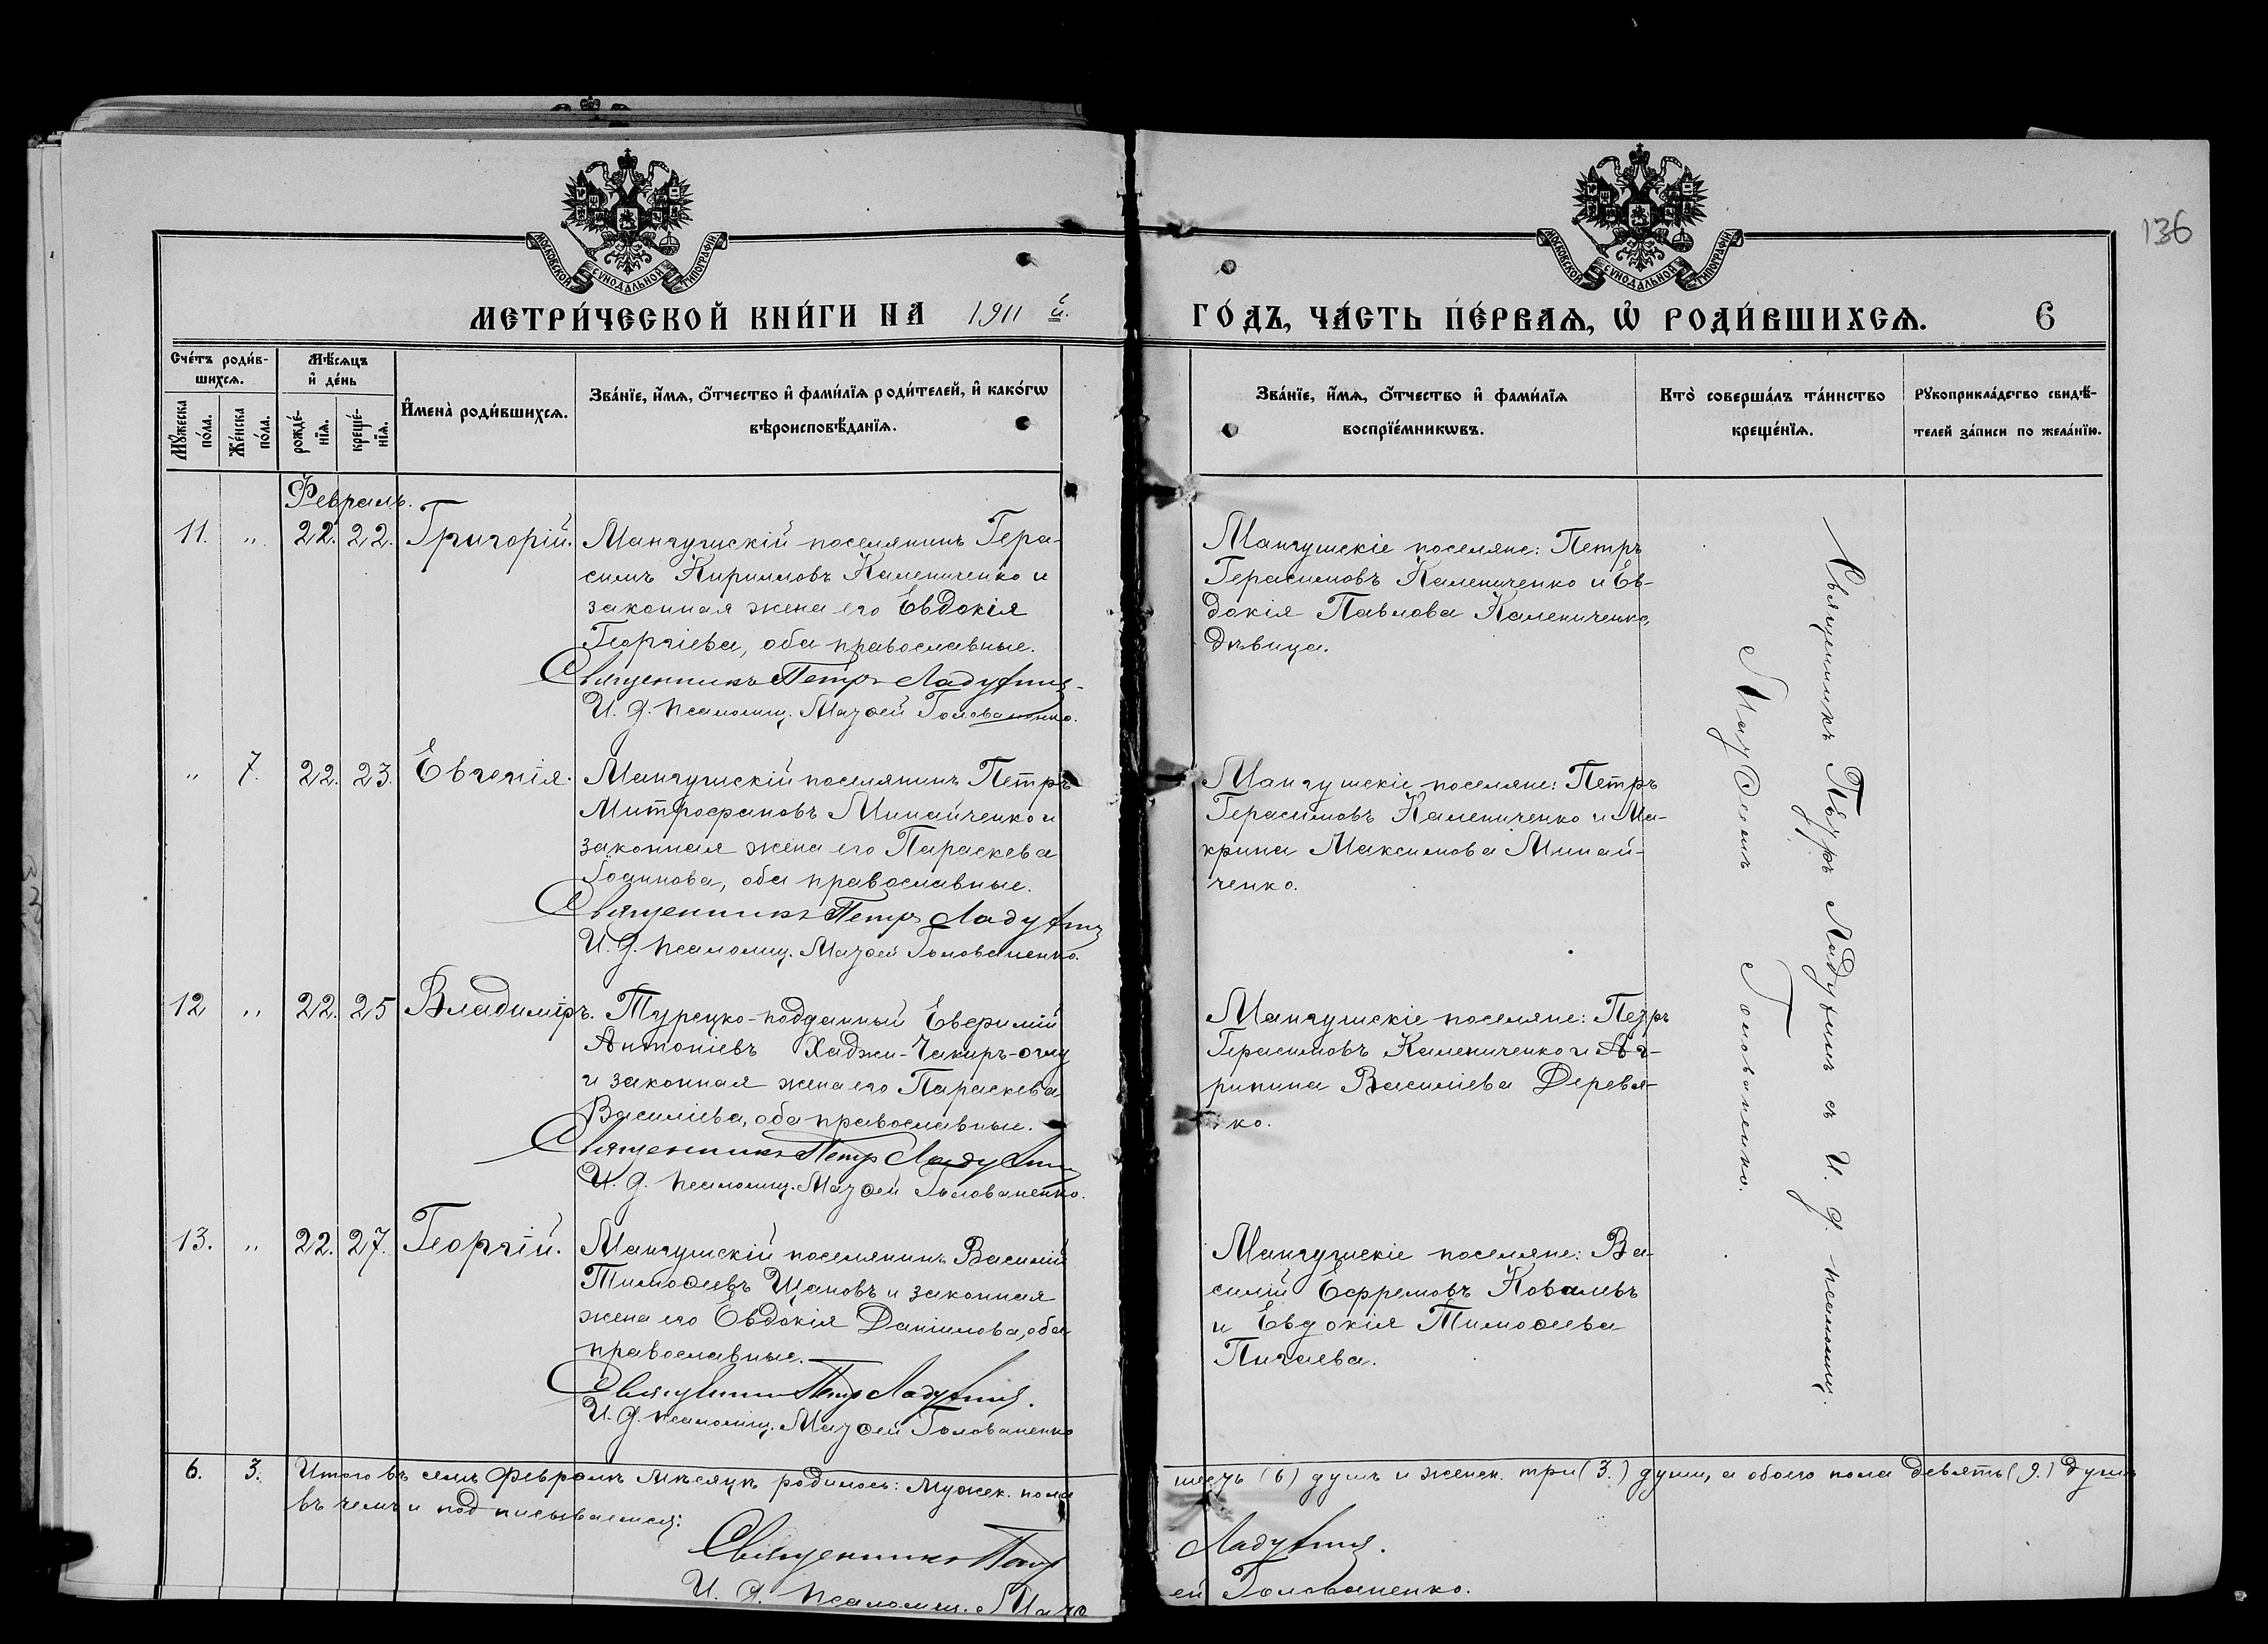 136
МОСКОВСКОЙ СУНОДАЛЬНОЙ ТИПОГРАФІИ
МОСКОВСКОЙ СУНОДАЛЬНОЙ ТИПОГРАФІИ
МЕТРИ́ЧЕСКОЙ КНИ́ГИ НА 1911 й.
ГО́ДЪ, ЧА́СТЬ ПЕ́РВАѦ, Ѽ РОДИ́ВШИХСѦ. 6
Сче́тъ роди́в-
шихсѧ.
Мꙋ́жеска по́ла.
Же́нска по́ла.
Мѣ́сѧцъ
и҆ де́нь
рожде́-
нїѧ.
креще́-
нїѧ.
И҆мена̀ роди́вшихсѧ.
Зва́нїе, и҆́мѧ, ѻ҆́тчество и҆ фами́лїѧ роди́телей, и҆ како́гѡ
вѣроисповѣ́данїѧ.
Зва́нїе, и҆́мѧ, ѻ҆́тчество и҆ фами́лїѧ
воспрїе́мникѡвъ.
Кто̀ соверша́лъ та́инство
креще́нїѧ.
Рꙋкоприкла́дство свидѣ́-
телей за́писи по жела́нїю.
Февраль.
11. " 22. 22. Григорій. Мангушскій поселянинъ Гера-
симъ Кирилловъ Калениченко и
законная жена его Евдокія
Георгіева, оба православные.
Священникъ Петръ Ладухинъ
И. д. псаломщ. Матѳей Голованенко.
Мангушскіе поселяне: Петръ
Герасимовъ Калениченко и Ев-
докія Павлова Калениченко,
дѣвица.
" 7. 22. 23. Евгенія. Мангушскій поселянинъ Петръ
Митрофановъ Минайченко и
законная жена его Параскева
Іоаннова, оба православные.
Священникъ Петръ Ладухинъ
И. д. псаломщ. Матѳей Голованенко.
Мангушскіе поселяне: Петръ
Герасимовъ Калениченко и Ма-
крина Максимова Минай-
ченко.
12 " 22. 25 Владиміръ. Турецко-подданный Евфимій
Антоніевъ Хаджи-Чакиръ-оглу
и законная жена его Параскева
Василіева, оба православные.
Священникъ Петръ Ладухинъ
И. д. псаломщ. Матѳей Голованенко.
Мангушскіе поселяне: Петръ
Герасимовъ Калениченко и Аг-
рипина Василіева Деревя-
ко.
13. " 22. 27. Георгій. Мангушскій поселянинъ Василій
Тимоѳеевъ Щаповъ и законная
жена его Евдокія Даніилова, оба
православные.
Священникъ Петръ Ладухинъ.
И. д. псаломщ. Матѳей Голованенко
Мангушскіе поселяне: Ва-
силій Ефремовъ Ковалевъ
и Евдокія Тимоѳеева
Пичаева.
Священникъ Петръ Ладухинъ съ И. д. псаломщ.
Матѳеемъ Голованенко.
6. 3. Итого въ семъ Февралѣ мѣсяцѣ родилось: мужск. пола
шесть (6) душъ и женск. три (3.) души, а обоего пола девять (9.) душъ
въ чемъ и подписываемся:
Священникъ Петръ Ладухинъ.
И. д. псаломщ. Матѳей Голованенко.